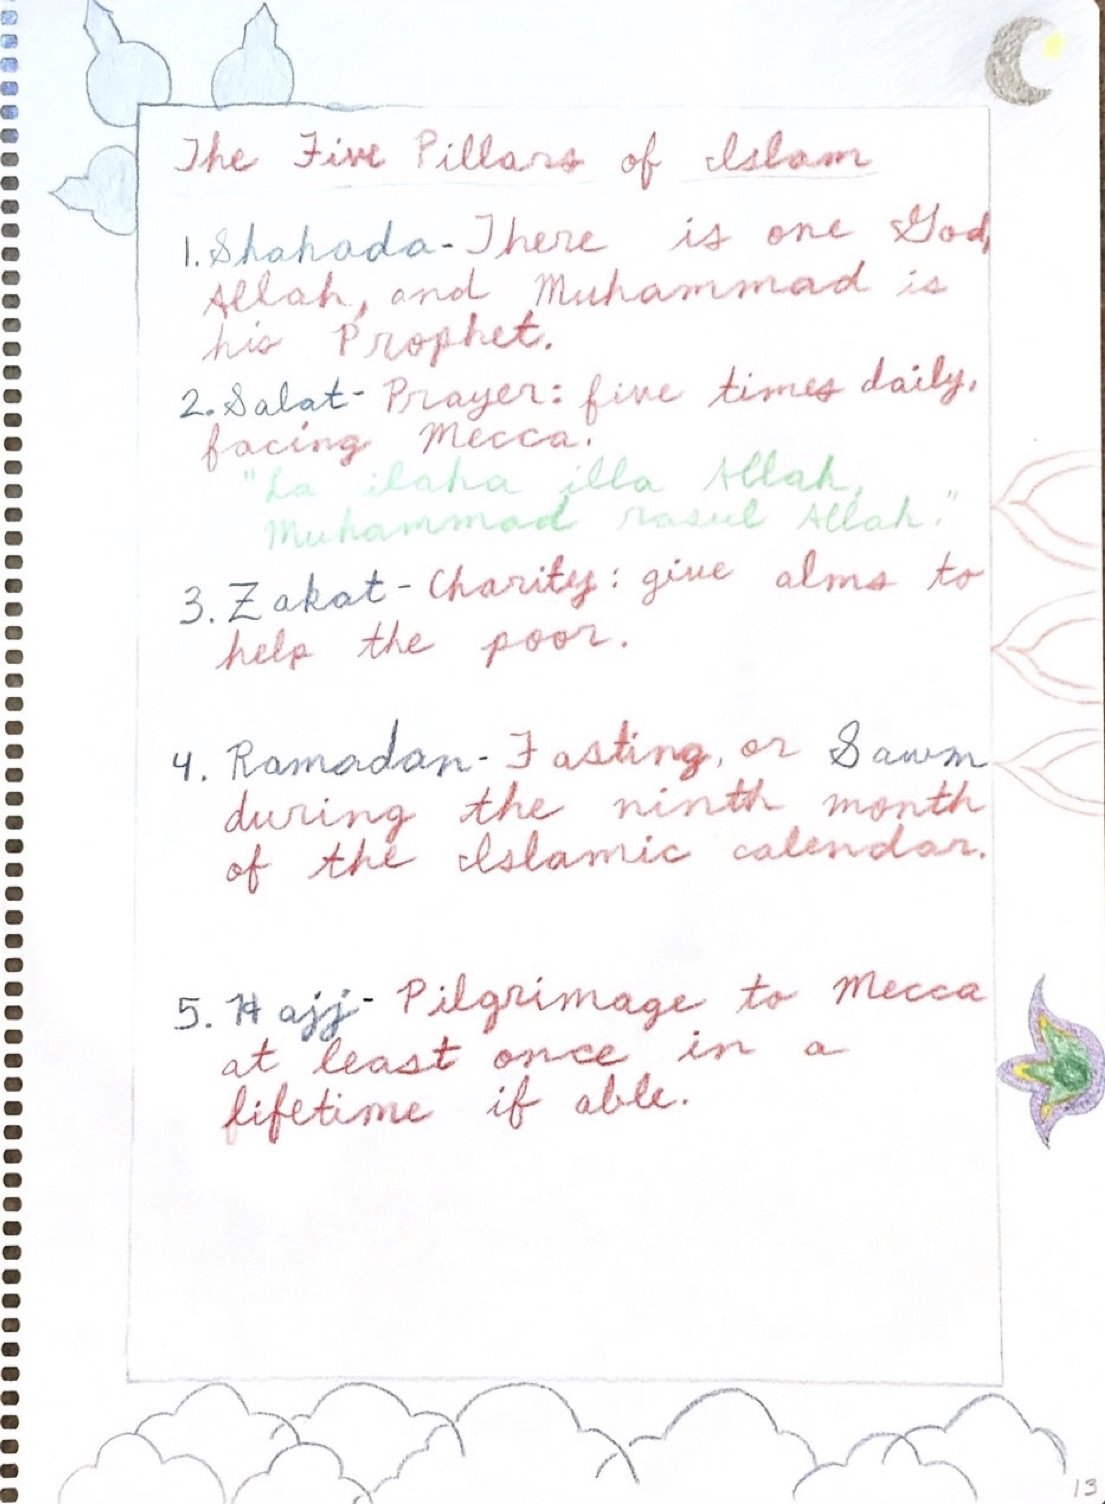 The Five Pillars of Islam
1. Shahada - There is one God,
Allah, and Muhammad is
his Prophet.
2. Salat - Prayer: five times daily,
facing Mecca.
"La ilaha illa Allah,
Muhammad rasul Allah."
3. Zakat - Charity: give alms to
help the poor.
4. Ramadan - Fasting, or Sawm
during the ninth month
of the Islamic calendar.
5. Hajj - Pilgrimage to Mecca
at least once in a
lifetime if able.
13